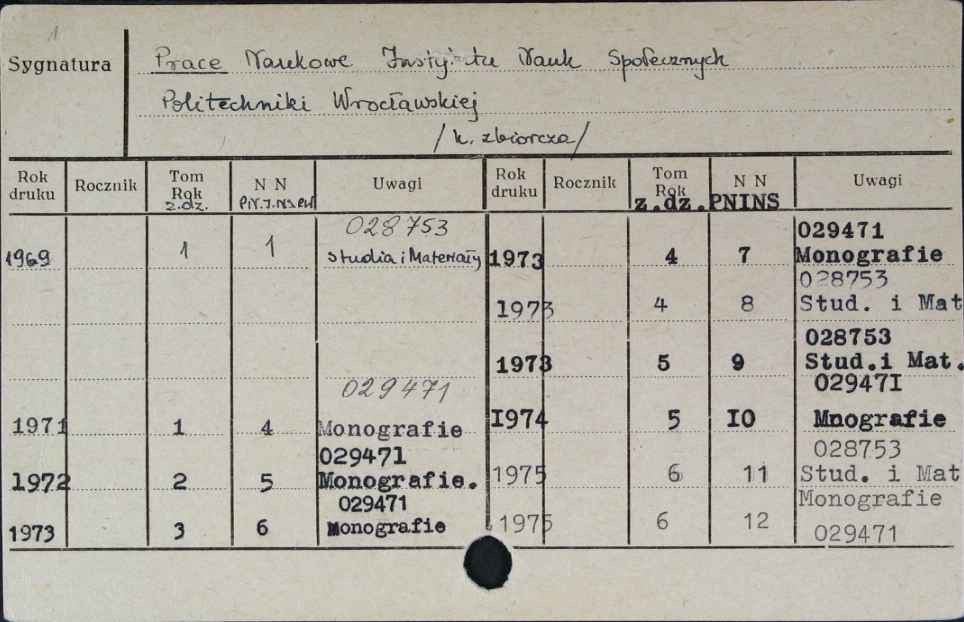 1
Sygnatura
Prace Naukowe Instytutu Nauk Społecznych
Politechniki Wrocławskiej
/k. zbiorcza/
Rok druku Rocznik Tom Rok z.dz. N N Uwagi
028753
1969 1 1 Studia i Materiały
029471
1971 1 4 Monografie
029471
1972 2 5 Monografie.
029471
1973 3 6 Monografie
Rok druku Rocznik Tom Rok z.dz. N N PNINS Uwagi
029471
1973 4 7 Monografie
028753
1973 4 8 Stud. i Mat
028753
1973 5 9 Stud.i Mat.
02947I
I974 5 IO Mnografie
028753
1975 6 11 Stud. i Mat
Monografie
1975 6 12 029471